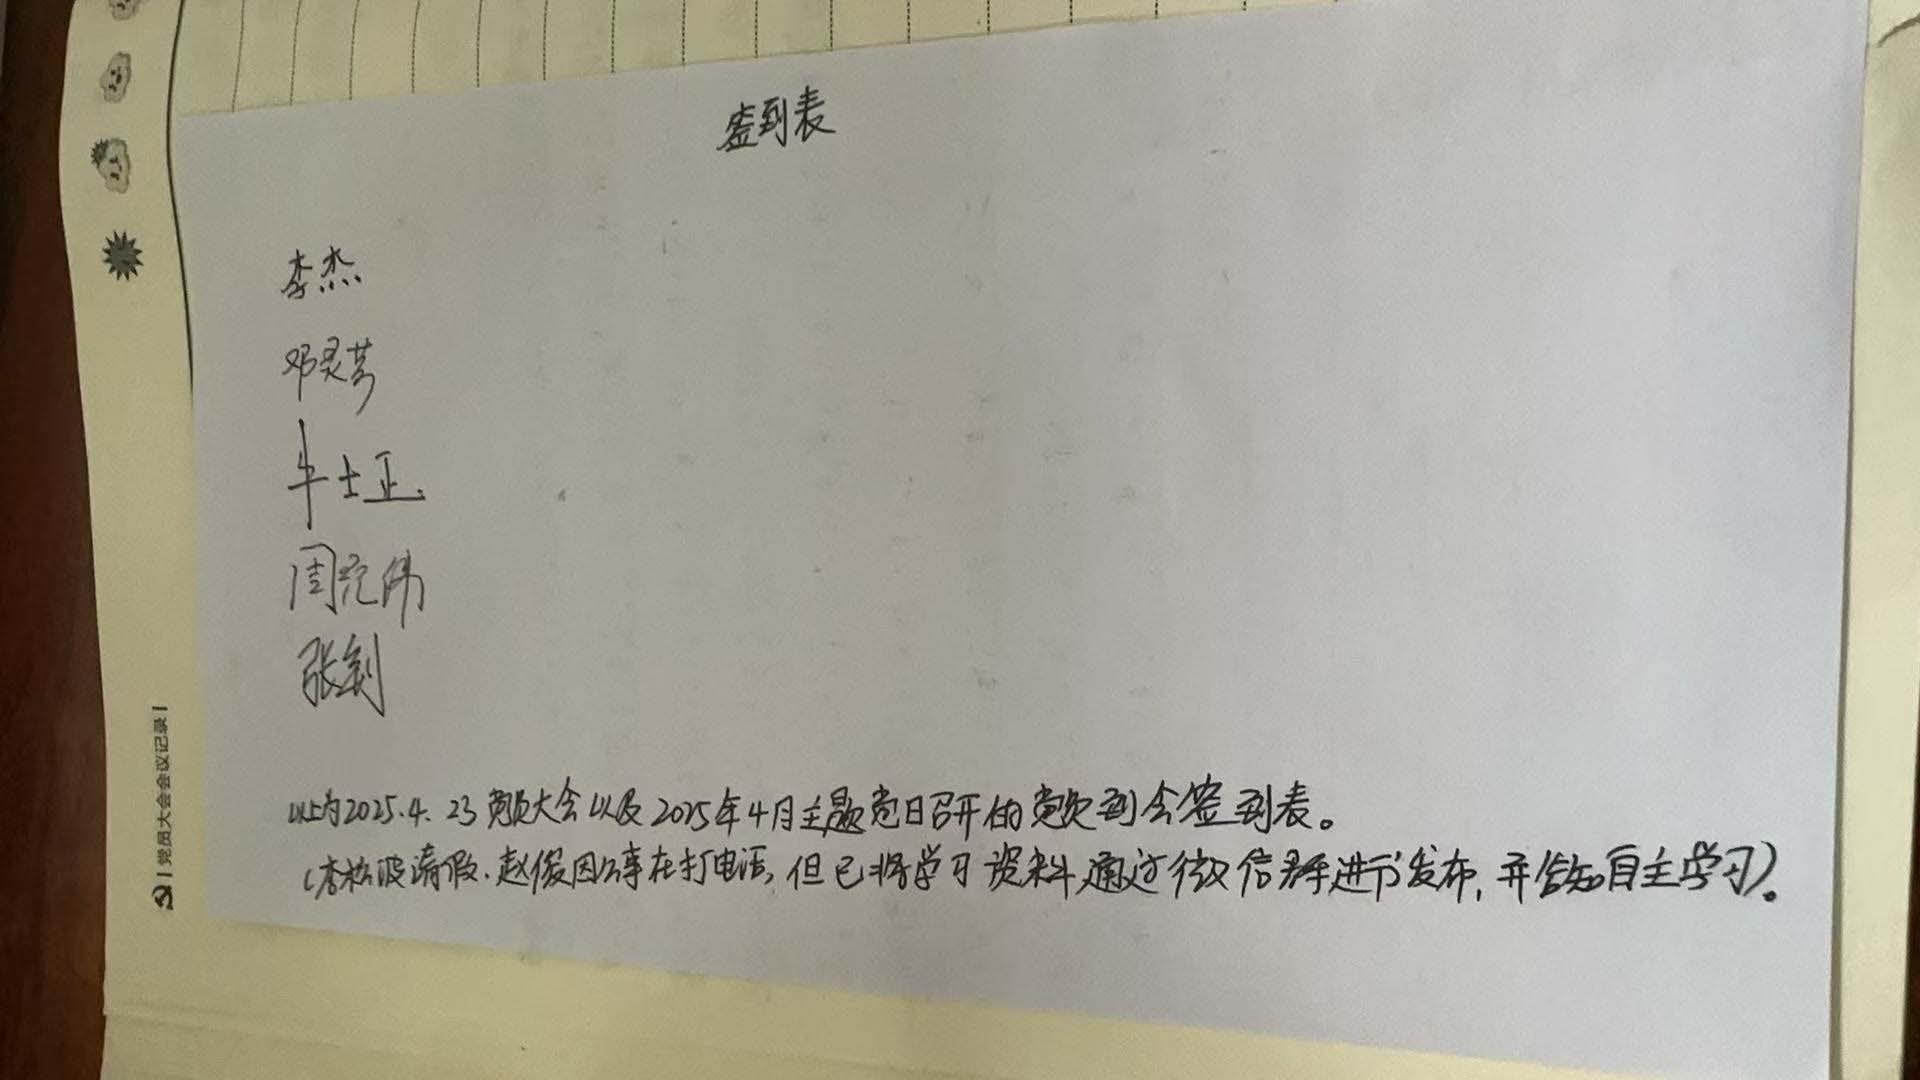 签到表
李杰
邓灵芳
牛士正
周宠伟
张钊
以上为2025.4.23党员大会以及2025年4月主题党日召开的党员到会签到表。
(李松波请假.赵俊因公事在打电话,但已将学习资料通过微信群进行发布,并告知自主学习)。
党员大会会议记录